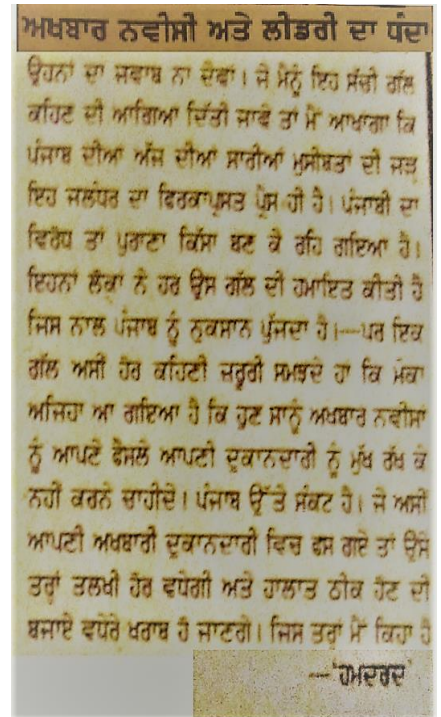 ਅਖਬਾਰ ਨਵੀਸੀ ਅਤੇ ਲੀਡਰੀ ਦਾ ਧੰਦਾ
ਉਹਨਾਂ ਦਾ ਜਵਾਬ ਨਾ ਦੇਵਾਂ। ਜੇ ਮੈਨੂੰ ਇਹ ਸੱਚੀ ਗੱਲ
ਕਹਿਣ ਦੀ ਆਗਿਆ ਦਿੱਤੀ ਜਾਵੇ ਤਾਂ ਮੈਂ ਆਖਾਂਗਾ ਕਿ
ਪੰਜਾਬ ਦੀਆਂ ਅੱਜ ਦੀਆਂ ਸਾਰੀਆਂ ਮੁਸੀਬਤਾਂ ਦੀ ਜੜ੍ਹ
ਇਹ ਜਲੰਧਰ ਦਾ ਫਿਰਕਾਪ੍ਰਸਤ ਪ੍ਰੈਸ ਹੀ ਹੈ। ਪੰਜਾਬੀ ਦਾ
ਵਿਰੋਧ ਤਾਂ ਪੁਰਾਣਾ ਕਿੱਸਾ ਬਣ ਕੇ ਰਹਿ ਗਇਆ ਹੈ।
ਇਹਨਾਂ ਲੋਕਾਂ ਨੇ ਹਰ ਉਸ ਗੱਲ ਦੀ ਹਮਾਇਤ ਕੀਤੀ ਹੈ
ਜਿਸ ਨਾਲ ਪੰਜਾਬ ਨੂੰ ਨੁਕਸਾਨ ਪੁੱਜਦਾ ਹੈ।—ਪਰ ਇਕ
ਗੱਲ ਅਸੀਂ ਹੋਰ ਕਹਿਣੀ ਜ਼ਰੂਰੀ ਸਮਝਦੇ ਹਾਂ ਕਿ ਮੌਕਾ
ਅਜਿਹਾ ਆ ਗਇਆ ਹੈ ਕਿ ਹੁਣ ਸਾਨੂੰ ਅਖਬਾਰ ਨਵੀਸਾਂ
ਨੂੰ ਆਪਣੇ ਫੈਸਲੇ ਆਪਣੀ ਦੁਕਾਨਦਾਰੀ ਨੂੰ ਮੁੱਖ ਰੱਖ ਕੇ
ਨਹੀਂ ਕਰਨੇ ਚਾਹੀਦੇ। ਪੰਜਾਬ ਉੱਤੇ ਸੰਕਟ ਹੈ। ਜੇ ਅਸੀਂ
ਆਪਣੀ ਅਖਬਾਰੀ ਦੁਕਾਨਦਾਰੀ ਵਿਚ ਫਸ ਗਏ ਤਾਂ ਉਸੇ
ਤਰ੍ਹਾਂ ਤਲਖੀ ਹੋਰ ਵਧੇਗੀ ਅਤੇ ਹਾਲਾਤ ਠੀਕ ਹੋਣ ਦੀ
ਬਜਾਏ ਵਧੇਰੇ ਖਰਾਬ ਹੋ ਜਾਣਗੇ। ਜਿਸ ਤਰ੍ਹਾਂ ਮੈਂ ਕਿਹਾ ਹੈ
—'ਹਮਦਰਦ'